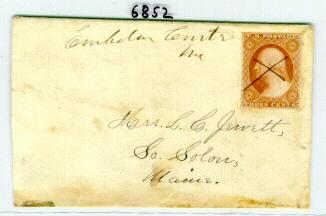 6852
Embden Centre
Me
U.S. POSTAGE
THREE CENTS
Mrs. L. C. Jewett,
So. Solon,
Maine.